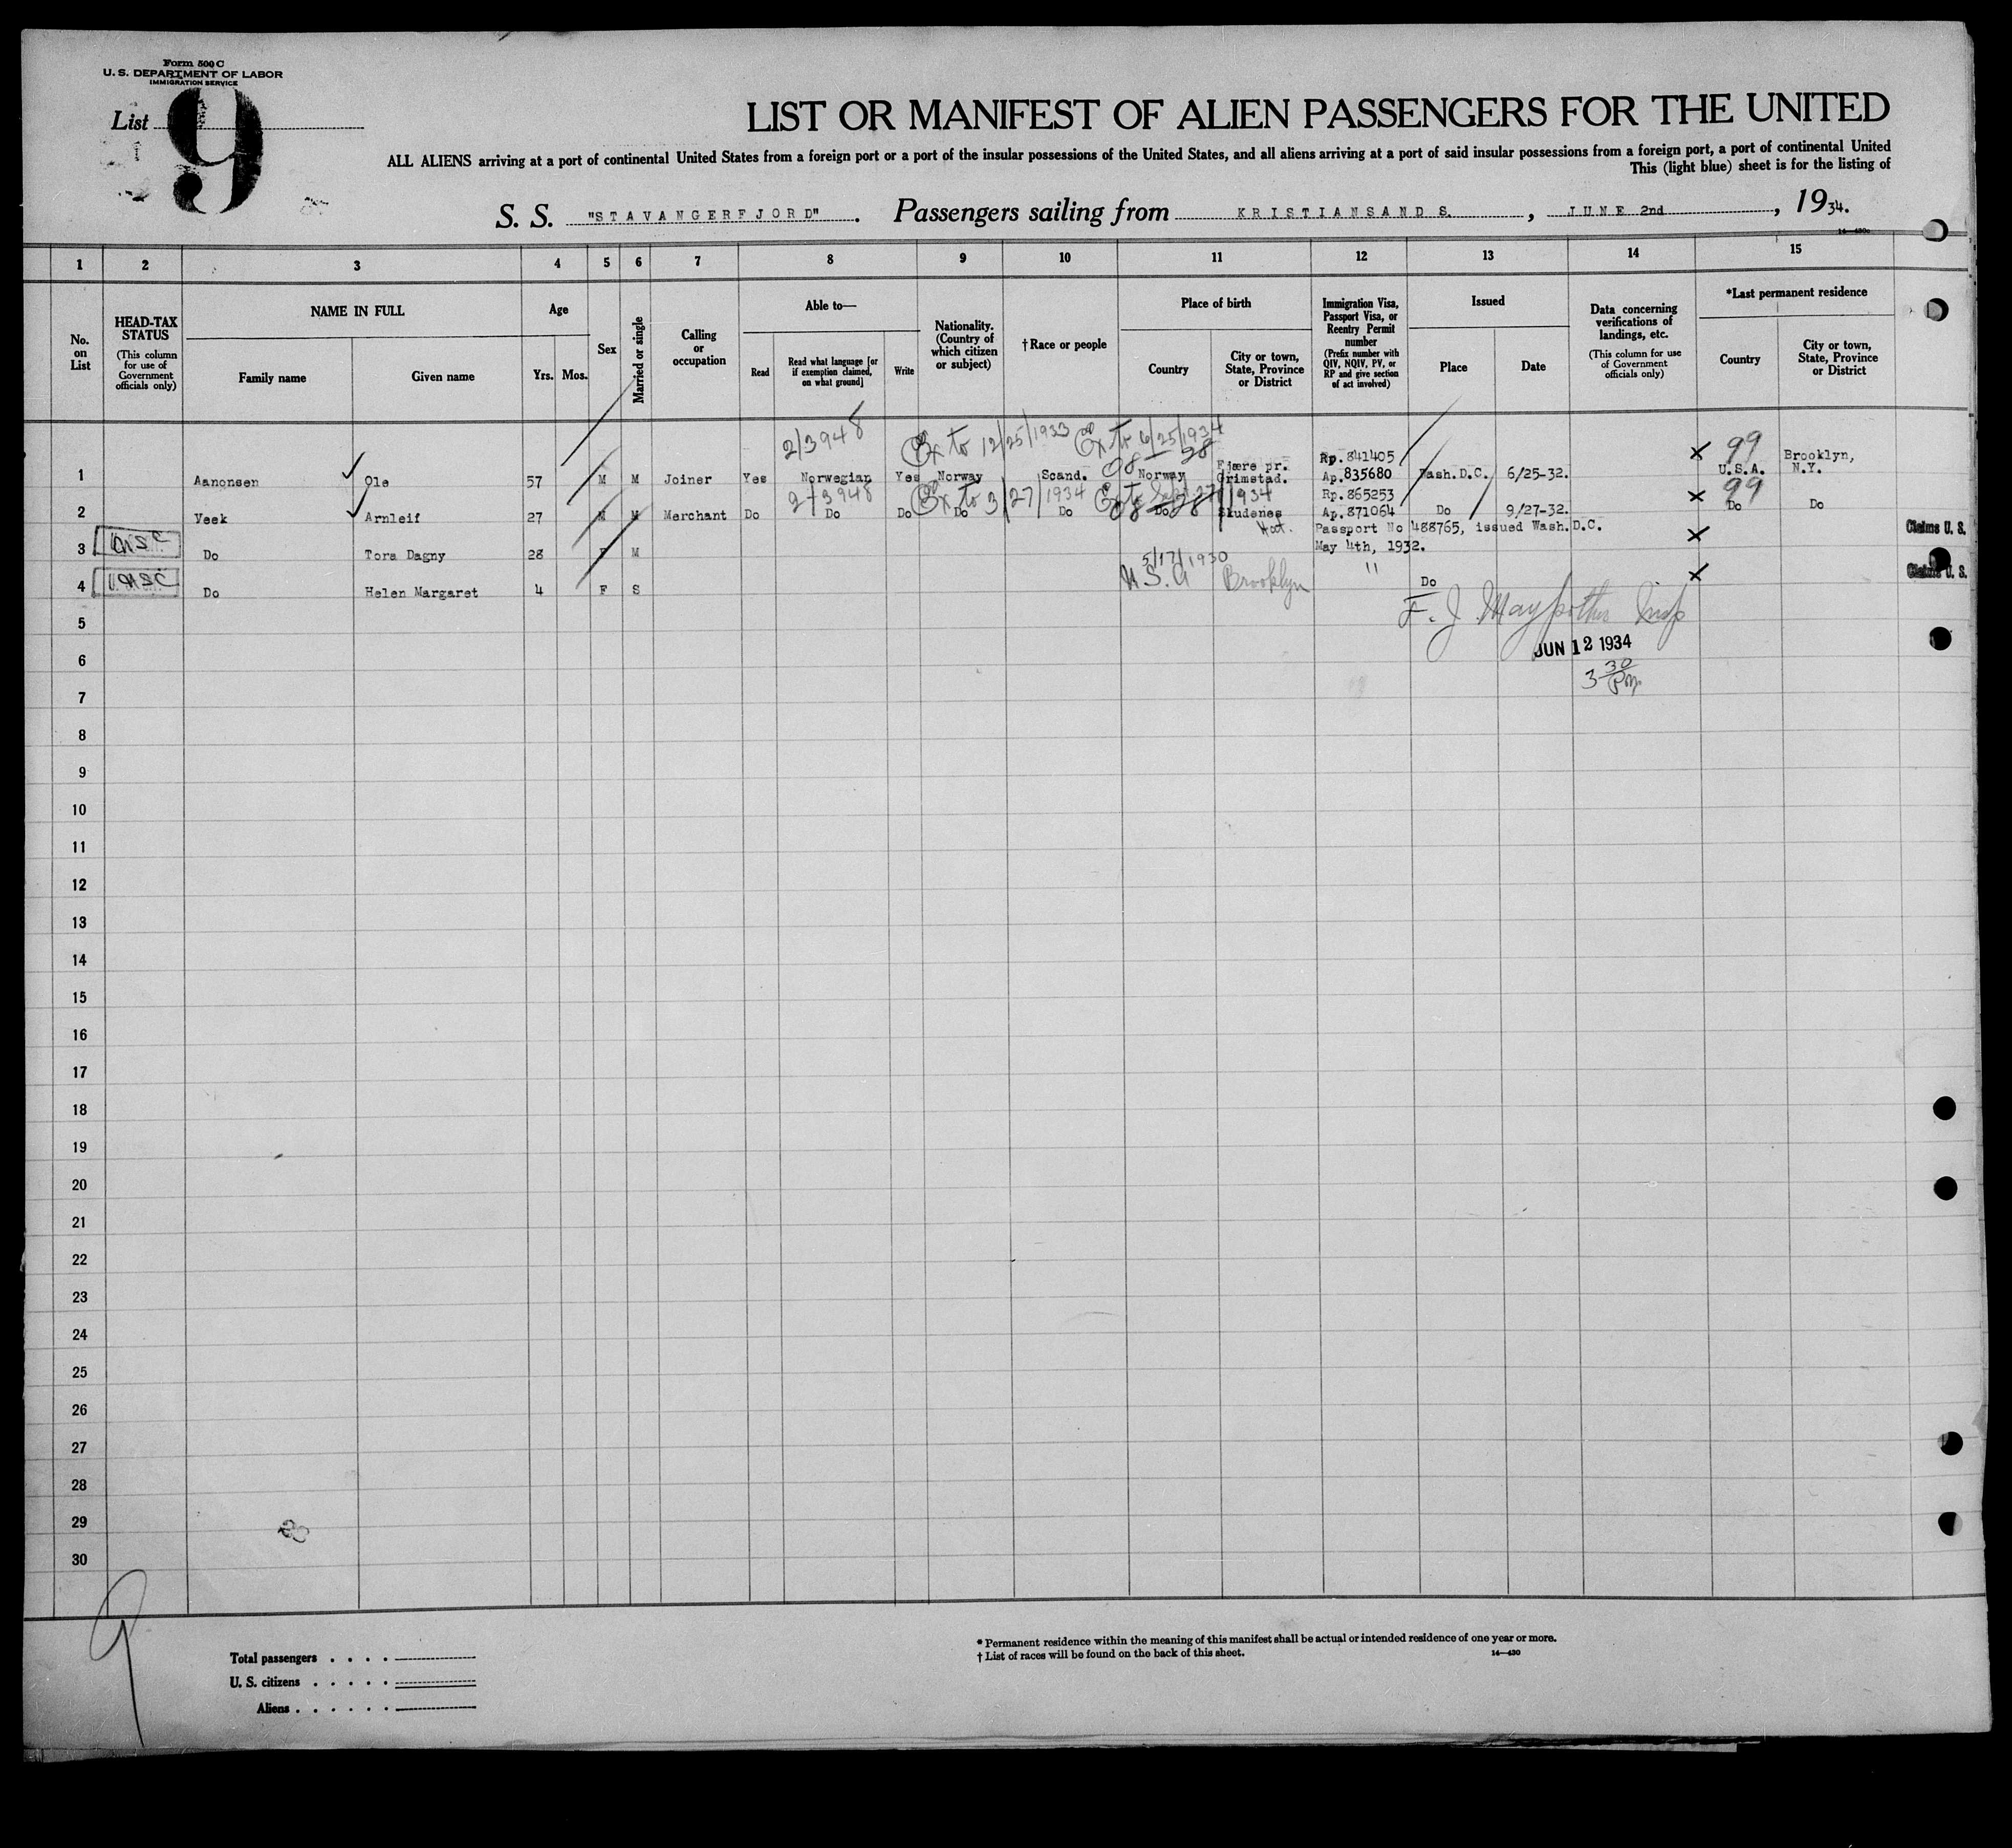 Form 500 C
U. S. DEPARTMENT OF LABOR
IMMIGRATION SERVICE
List 9
LIST OR MANIFEST OF ALIEN PASSENGERS FOR THE UNITED
ALL ALIENS arriving at a port of continental United States from a foreign port or a port of the insular possessions of the United States, and all aliens arriving at a port of said insular possessions from a foreign port, a port of continental United
This (light blue) sheet is for the listing of
S. S. "STAVANGERFJORD". Passengers sailing from KRISTIANSAND S., JUNE 2nd, 1934.
14—430c
1 2 3 4 5 6 7 8 9 10 11 12 13 14 15
No. on List
HEAD-TAX STATUS
(This column for use of Government officials only)
NAME IN FULL
Family name
Given name
Age
Yrs. Mos.
Sex
Married or single
Calling or occupation
Able to—
Read
Read what language [or if exemption claimed, on what ground]
Write
Nationality. (Country of which citizen or subject)
†Race or people
Place of birth
Country
City or town, State, Province or District
Immigration Visa, Passport Visa, or Reentry Permit number
(Prefix number with QIV, NQIV, PV, or RP and give section of act involved)
Issued
Place
Date
Data concerning verifications of landings, etc.
(This column for use of Government officials only)
*Last permanent residence
Country
City or town, State, Province or District
2/3948 Ex to 12/25/1933 Ex to 6/25/1934
98 28 Fjære pr. Rp. 841405 99 Brooklyn,
1 Aanonsen Ole 57 M M Joiner Yes Norwegian Yes Norway Scand. Norway Grimstad. Ap. 835680 Wash.D.C. 6/25-32. U.S.A. N.Y.
2/3948 Ex to 3/27/1934 Ex to Sept 27/1934 Rp. 865253 99
2 Veek Arnleif 27 M M Merchant Do Do Do Do Do Do Skudenes Ap. 871064 Do 9/27-32. Do Do
Passport No 488765, issued Wash.D.C.
3 USC Do Tora Dagny 28 F M May 4th, 1932. Claims U. S.
5/17/1930
4 USC Do Helen Margaret 4 F S U.S.A Brooklyn " Do Claims U. S.
5 F. J. Insp
6 JUN 12 1934
7 3 30 Pm
8
9
10
11
12
13
14
15
16
17
18
19
20
21
22
23
24
25
26
27
28
29
30
9
Total passengers
U. S. citizens
Aliens
* Permanent residence within the meaning of this manifest shall be actual or intended residence of one year or more.
† List of races will be found on the back of this sheet.
14—430